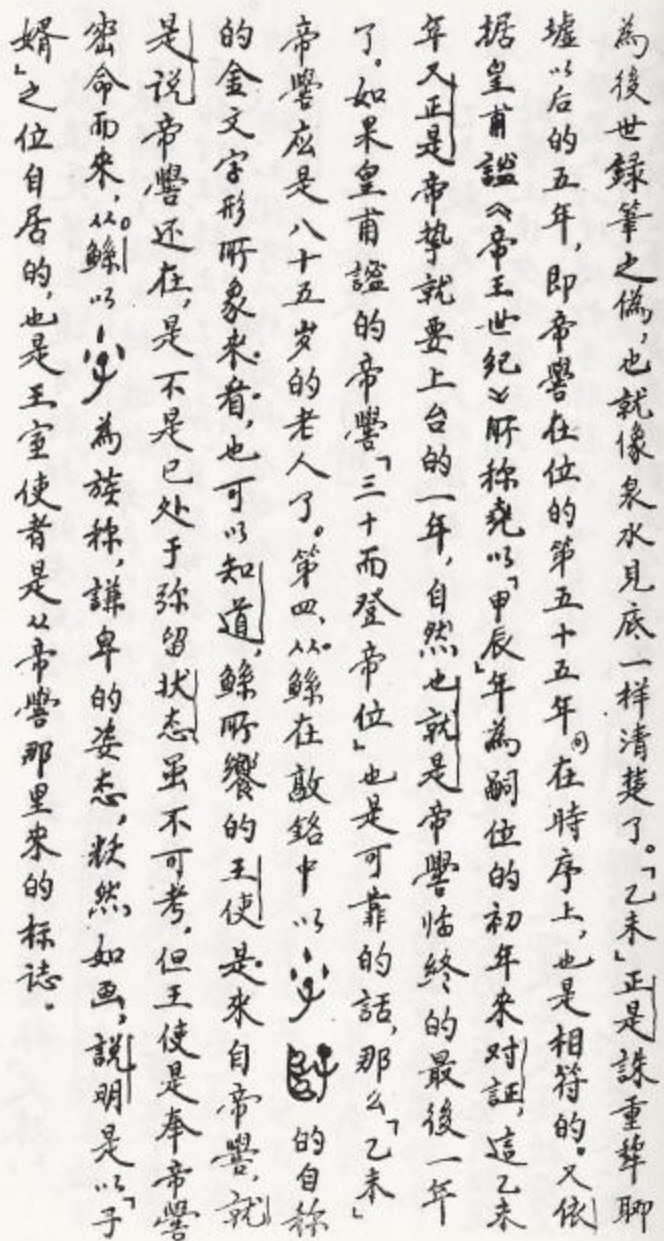 為後世録筆之偽，也就像泉水見底一样清楚了。「乙未」正是誅重犂聊
墟以后的五年，即帝嚳在位的第五十五年。在時序上，也是相符的。又依
据皇甫謐《帝王世紀》所称堯以「甲辰」年為嗣位的初年来对証，這乙未
年又正是帝挚就要上台的一年，自然也就是帝嚳临終的最後一年
了。如果皇甫謐的帝嚳「三十而登帝位」也是可靠的話，那么「乙未」
帝嚳应是八十五岁的老人了。第四、从鯀在敦銘中以 的自称
的金文字形所象来看，也可以知道，鯀所饗的王使是来自帝嚳，就
是説帝嚳还在，是不是已处于弥留状态虽不可考，但王使是奉帝嚳
密命而来，从鯀以 為族称，謙卑的姿态，欵然如画，説明是以「子
婿」之位自居的，也是王室使者是从帝嚳那里来的标誌。